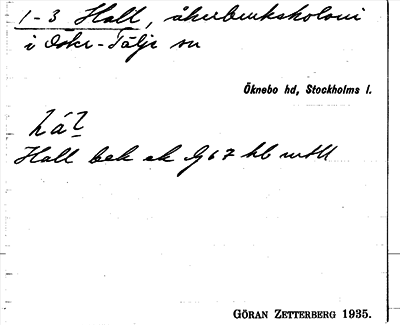 1-3 Hall, åkerbrukskoloni
i Öster-Tälje sn
Öknebo hd, Stockholms l.
há2
Hall bek ek G67 bl
GÖRAN ZETTERBERG 1935.